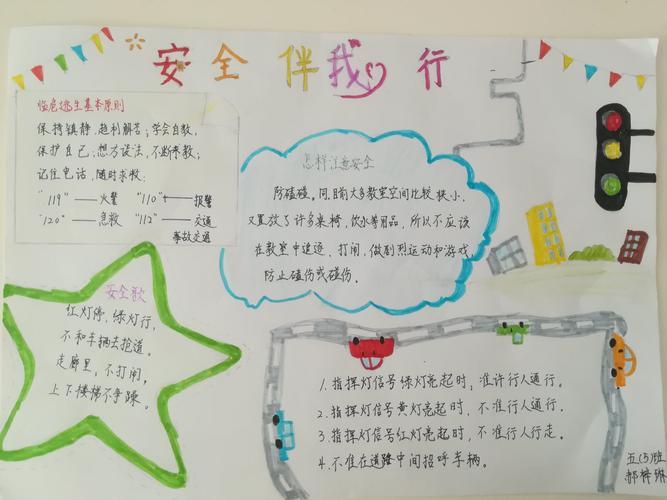 安全伴我行
临危逃生基本原则
保持镇静,趋利解害;学会自救,
保护自己;想方设法,不断求救;
记住电话,随时求救:
"119"——火警 "110"——报警
"120"——急救 "112"——交通
事故交通
怎样注意安全
防磕碰。同目前大多教室空间比较狭小,
又置放了许多桌椅,饮水等用品,所以不应该
在教室中追逐、打闹,做剧烈运动和游戏,
防止碰伤或磕伤。
安全歌
红灯停,绿灯行,
不和车辆去抢道。
走廊里,不打闹,
上下楼梯不争躁。
1.指挥灯信号绿灯亮起时,准许行人通行。
2.指挥灯信号黄灯亮起时,不准行人通行。
3.指挥灯信号红灯亮起时,不准行人行走。
4.不准在道路中间招呼车辆。
五(3)班
郝梓琳